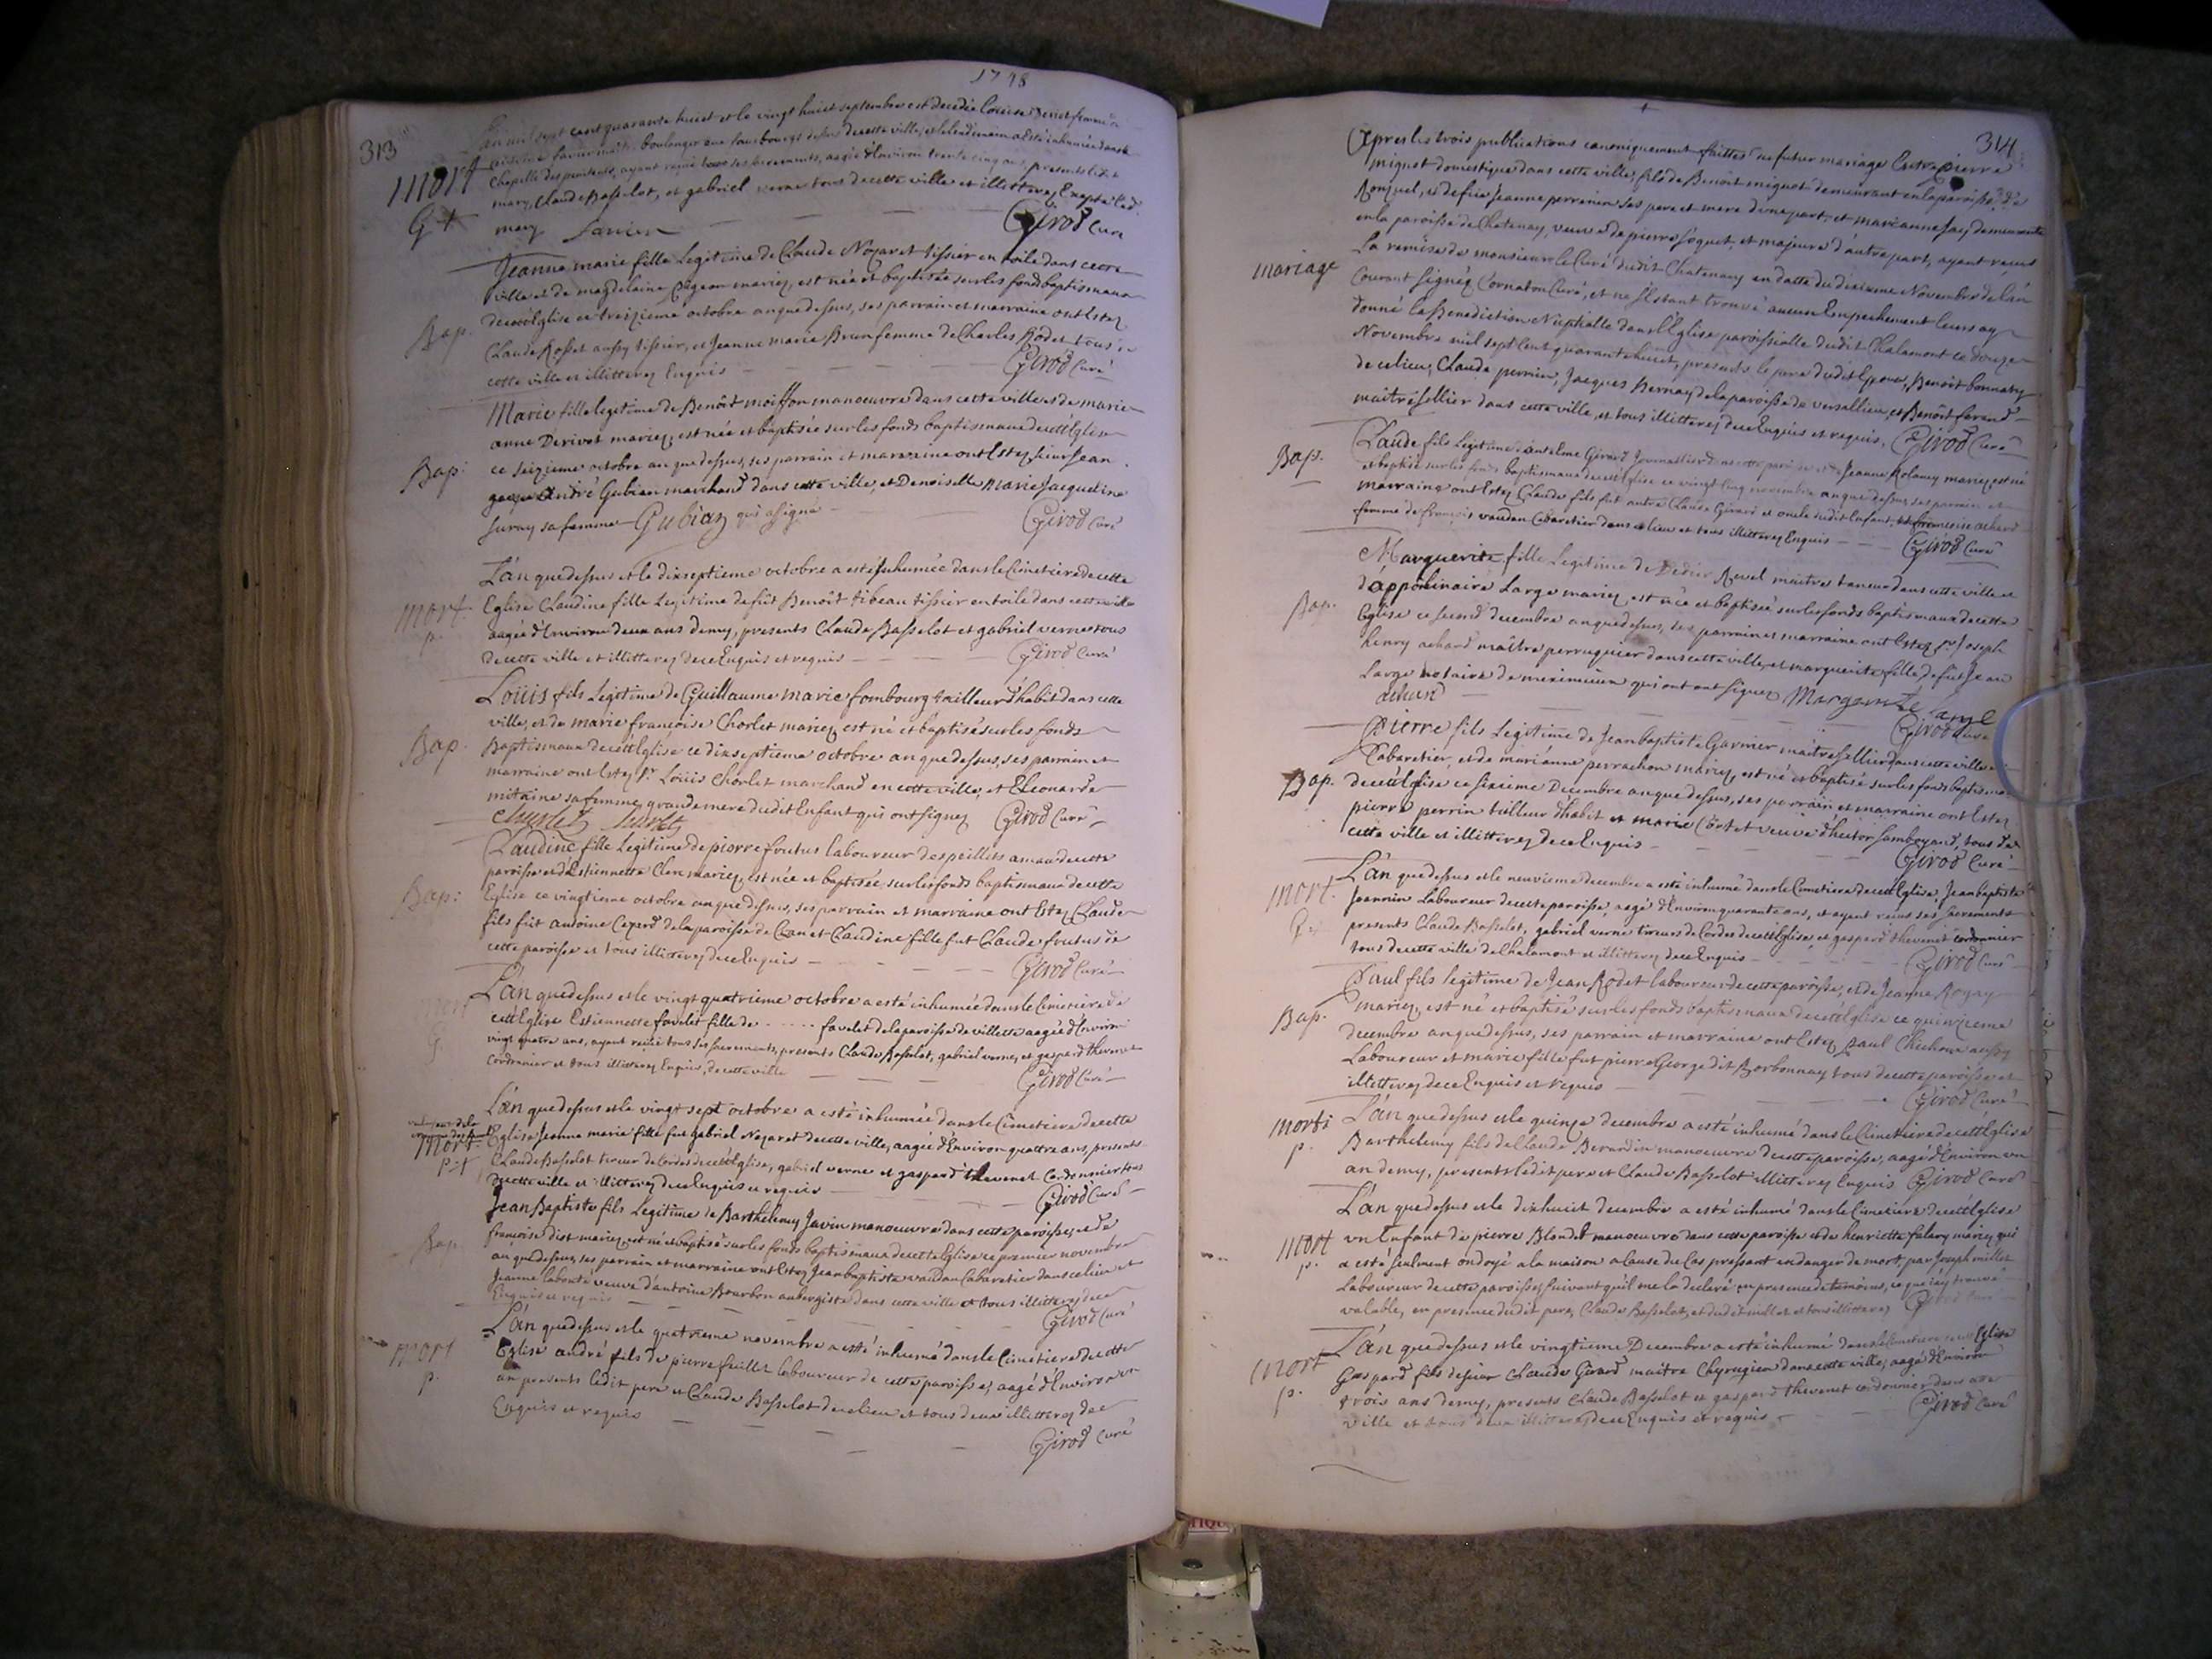 1748
313
L'an mil sept cent quarante huict et le vingt huict septembre est decedée Louise femme de
boulanger aux fausbourgs de cette ville, et le lendemain a esté inhumée dans la
Chapelle des penitents, ayant reçu tous ses sacrements, aagée d'Environ trente cinq ans, presents ledit
mary, Claude Basselot, et gabriel verne tous de cette ville et illitterez Excepté led.
mary
Girod Curé
mort
G +
Jeanne marie fille Legitime de Claude Nozaret tissier en toile dans cette
ville et de magdelaine Pigeon mariez, est née et baptisée sur les fonds baptismaux
de cett Eglise ce treizieme octobre an que dessus, ses parrain et marraine ont Estez
Bap.
Claude Rosset aussy tissier, et Jeanne marie Brun femme de Charles Rodet tous de
cette ville et illitterez Enquis
Girod Curé
Marie fille legitime de Benoît moiffon manoeuvre dans cette ville et de marie
anne Derivot mariez, est née et baptisée sur les fonds baptismaux de cett Eglise
Bap.
ce seizieme octobre an que dessus, ses parrain et marraine ont Estez sieur Jean
andré Gubian marchand dans cette ville, et Demoiselle marie Jacqueline
Juray sa femme Gubian qui a signé
Girod Curé
L'an que dessus et le dixseptieme octobre a esté Inhumée dans le Cimetiere de cette
mort.
p.
Eglise Claudine fille Legitime de fût Benoît tibeau tissier en toile dans cette ville
aagée d'Environ deux ans demy, presents Claude Basselot et gabriel verne tous
de cette ville et illitterez de ce Enquis et requis
Girod Curé
Loüis fils Legitime de Guillaume marie fombourg tailleur d'habit dans cette
ville, et de marie françoise Chorlet mariez est né et baptisé sur les fonds
Bap.
Baptismaux de cett Eglise ce dixseptieme octobre an que dessus, ses parrain et
marraine ont Estez Sr Loüis Chorlet marchand en cette ville, et Leonarde
mitaine sa femme, grande mere dudit Enfant qui ont signez
Girod Curé
Claudine fille Legitime de pierre frutus laboureur des peillits amau de cette
paroisse et d'Estiennette Clen mariez, est née et baptisée sur les fonds baptismaux de cette
Bap:
Eglise ce vingtieme octobre an que dessus, ses parrain et marraine ont Estez Claude
fils fût antoine Cezard de la paroisse de Cran et Claudine fille fut Claude frutus de
cette paroisse et tous illitterez de ce Enquis
Girod Curé
L'an que dessus et le vingt quatrieme octobre a esté inhumée dans le Cimetiere de
mort
G.
cett Eglise Estiennette favelet fille de ..... favelet de la paroisse de villette aagée d'Environ
vingt quatre ans, ayant reçüe tous ses sacrements, presents Claude Basselot, gabriel verne, et gaspard thevenet
Cordonnier et tous illitterez Enquis, de cette ville
Girod Curé
L'an que dessus et le vingt sept octobre a esté inhumée dans le Cimetiere de cette
mort
Eglise Jeanne marie fille fut gabriel Nozaret de cette ville, aagée d'Environ quattre ans, presents
Claude Basselot tireur de Cordes de cett Eglise, gabriel verne et gaspard thevenet Cordonnier tous
de cette ville et illitterez de ce Enquis et requis
Girod Curé
Jean Baptiste fils Legitime de Barthelemy Javin manoeuvre dans cette paroisse, et de
françoise dist mariez, est né et baptisé sur les fonds baptismaux de cette Eglise ce premier novembre
Bap.
an que dessus, ses parrain et marraine ont Estez Jean baptiste vaudan Cabaretier dans ce lieu et
Jeanne Labouté veuve d'antoine Bourbon aubergiste dans cette ville et tous illitterez de ce
Enquis et requis
Girod Curé
L'an que dessus et le quatrieme novembre a esté inhumé dans le Cimetiere de cette
mort
p.
Eglise andré fils de pierre feuillet laboureur de cette paroisse, aagé d'Environ un
an presents ledit pere et Claude Basselot de ce lieu et tous deux illitterez de ce
Enquis et requis
Girod Curé
314
Apres les trois publications canoniquement faittes du futur mariage Entre pierre
miguet domestique dans cette ville, fils de Benoît miguet demeurant en la paroisse de
Ronzuel, et de fue Jeanne perrenin ses pere et mere d'une part, et marianne Jay demeurante
en la paroisse de Chatenay, veuve de pierre foquet, et majeure d'autre part, ayant reçus
mariage
La remise de monsieur le Curé dudit Chatenay en datte du dixieme Novembre de l'an
Courant signée Cornaton Curé, et ne s'Estant trouvé aucun Empechement leurs ay
donné la Benediction Nuptialle dans l'Eglise paroissialle dudit Chalamont ce douze
Novembre mil sept cent quarante huict, presents le pere dudit Epoux, Benoît bonnaty
de ce lieu, Claude perrin, Jacques Bernay de la paroisse de versallieu, et Benoît ferand
maitre sellier dans cette ville, et tous illitterez de ce Enquis et requis.
Girod Curé
Claude fils Legitime d'anselme Girard Journallier dans cette paroisse et de Jeanne Rolany mariez, est né
Bap.
et baptisé sur les fonds baptismaux de cett Eglise ce vingt cinq novembre an que dessus, ses parrain et
marraine ont Estez Claude fils fut autre Claude Girard et oncle dudit Enfant, et françoise achard
femme de françois vaudan Cabaretier dans ce lieu et tous illitterez Enquis
Girod Curé
Marguerite fille Legitime de Didier Revel maitre tanneur dans cette ville et
d'appolinaire Large mariez, est née et baptisée sur les fonds baptismaux de cette
Bap.
Eglise ce second decembre an que dessus, ses parrain et marraine ont Estez Sr Joseph
henry achard maître perruquier dans cette ville, et marguerite fille de fut Jean
Large notaire de meximieux qui ont signez
achard
Girod Curé
Pierre fils Legitime de Jean baptiste Garnier maître sellier dans cette ville et
Cabaretier, et de marianne perrachon mariez, est né et baptisé sur les fonds baptismaux
Bap.
de cett Eglise ce sixieme Decembre an que dessus, ses parrain et marraine ont Estez
pierre perrin tailleur d'habit et marie Cortet veuve d'hector Jamboyard, tous de
cette ville et illitterez de ce Enquis
Girod Curé
L'an que dessus et le neuvieme decembre a esté inhumé dans le Cimetiere de cett Eglise, Jean baptiste
mort.
Jeannin Laboureur de cette paroisse, aagé d'Environ quarante ans, et ayant reçus ses sacrements
presents Claude Basselot, gabriel verne tireurs de Cordes de cett Eglise, et gaspard thevenet Cordonnier
tous de cette ville de Chalamont et illitterez de ce Enquis
Girod Curé
Paul fils legitime de Jean Rodet laboureur de cette paroisse, et de Jeanne Royay
Bap.
mariez, est né et baptisé sur les fonds baptismaux de cett Eglise ce quinzieme
decembre an que dessus, ses parrain et marraine ont Estez paul Chichoux aussy
Laboureur et marie fille fut pierre George dit Borbonnay tous de cette paroisse et
illitterez de ce Enquis et requis
Girod Curé
morts
p.
L'an que dessus et le quinze decembre a esté inhumé dans le Cimetiere de cett Eglise
Barthelemy fils de Claude Berardin manoeuvre de cette paroisse, aagé d'Environ un
an demy, presents ledit pere et Claude Basselot illitterez Enquis Girod Curé
L'an que dessus et le dixhuict decembre a esté inhumé dans le Cimetiere de cett Eglise
mort
p.
un Enfant de pierre Blondet manoeuvre dans cette paroisse et de henriette falavy mariez, qui
a esté seulment ondoyé a la maison a Cause du Cas pressant en danger de mort, par Joseph millet
Laboureur de cette paroisse, suivant qu'il me la declaré en presence de temoins, ce que j'ay trouvé
valable, en presence dudit pere, Claude Basselot, et dudit millet et tous illitterez Girod Curé
L'an que dessus et le vingtieme Decembre a esté inhumé dans le Cimetiere de cett Eglise
mort
p.
Gaspard fils de sieur Claude Girard maitre Chyrugien dans cette ville, aagé d'Environ
trois ans demy, presents Claude Basselot et gaspard thevenet cordonnier dans cette
ville et tous deux illitterez de ce Enquis et requis
Girod Curé